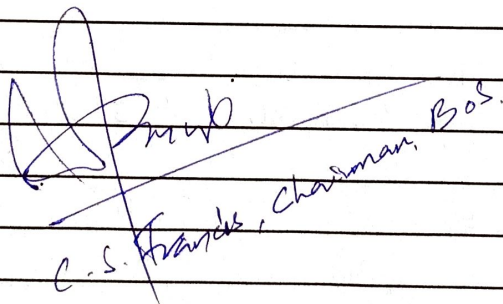 C.S. Francis, Chairman, BoS.